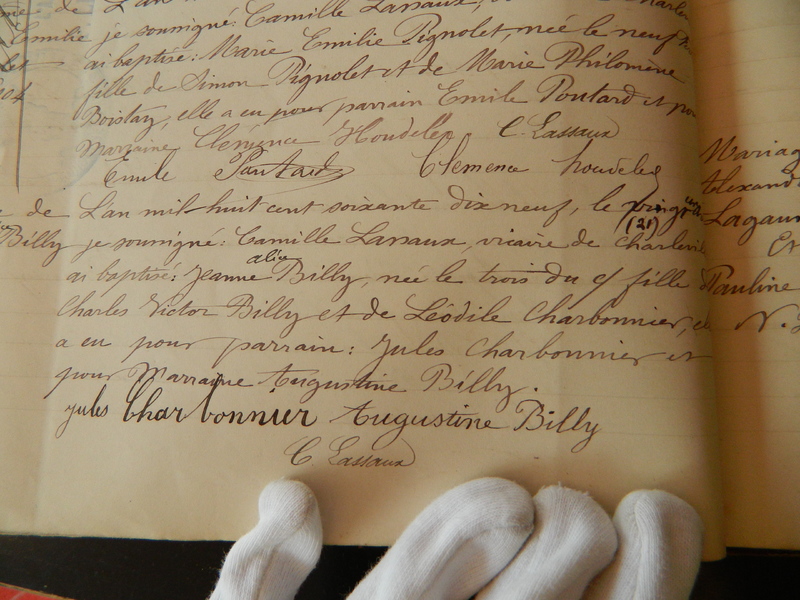 de L'an
Emilie je soussigné: Camille Lassaux,
ai baptisé: Marie Emilie Pignolet, née le neuf
fille de Simon Pignolet et de Marie Philomène
Boistay, elle a eu pour parrain Emile Poutard et pour
Marraine Clémence Houdelet C. Lassaux
Emile Poutard Clemence houdelet
de L'an mil-huit cent soixante dix neuf, le vingt un
(21)
Billy je soussigné: Camille Lassaux, vicaire de Charleville
alice
ai baptisé: Jeanne Billy, née le trois du ct fille de
Charles Victor Billy et de Léodile Charbonnier, elle
a eu pour parrain: Jules Charbonnier et
pour Marraine Augustine Billy.
jules Charbonnier Augustine Billy
C. Lassaux
Mariag
Alexand
Lagaun
Et
Pauline
N.